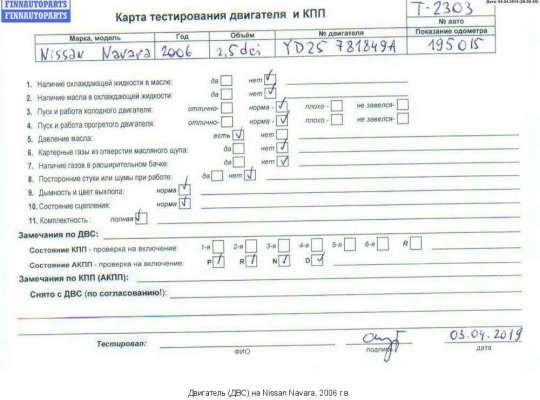 FINNAUTOPARTS
FINNAUTOPARTS
Карта тестирования двигателя и КПП
T-2303
№ авто
Марка, модель Год Объём № двигателя Показание одометра
Nissan Navara 2006 2,5 dci YD25 781849A 195015
1. Наличие охлаждающей жидкости в масле: да нет
2. Наличие масла в охлаждающей жидкости: да нет
3. Пуск и работа холодного двигателя: отлично- норма - плохо - не завелся-
4. Пуск и работа прогретого двигателя: отлично- норма - плохо - не завелся-
5. Давление масла: есть нет
6. Картерные газы из отверстия масляного щупа: да нет
7. Наличие газов в расширительном бачке: да нет
8. Посторонние стуки или шумы при работе: да нет
9. Дымность и цвет выхлопа: норма
10. Состояние сцепления: норма
11. Комплектность : полная
Замечания по ДВС:
Состояние КПП - проверка на включение: 1-я 2-я 3-я 4-я 5-я 6-я R
Состояние АКПП - проверка на включение: P R N D
Замечания по КПП (АКПП):
Снято с ДВС (по согласованию!):
Тестировал: 03.04.2019
ФИО подпись дата
Двигатель (ДВС) на Nissan Navara, 2006 г.в.